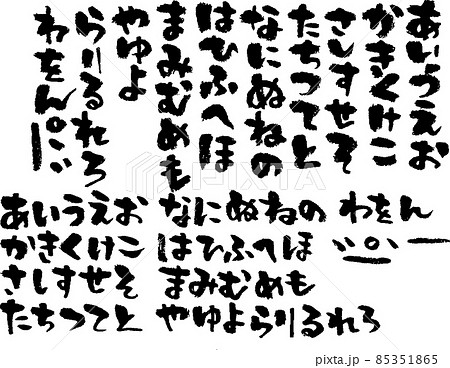 あいうえお
かきくけこ
さしすせそ
たちつてと
なにぬねの
はひふへほ
まみむめも
やゆよ
らりるれろ
わをん゜゛ー
あいうえお
かきくけこ
さしすせそ
たちつてと
なにぬねの
はひふへほ
まみむめも
やゆよらりるれろ
わをん
゛゜ー
pixta.jp - 85351865